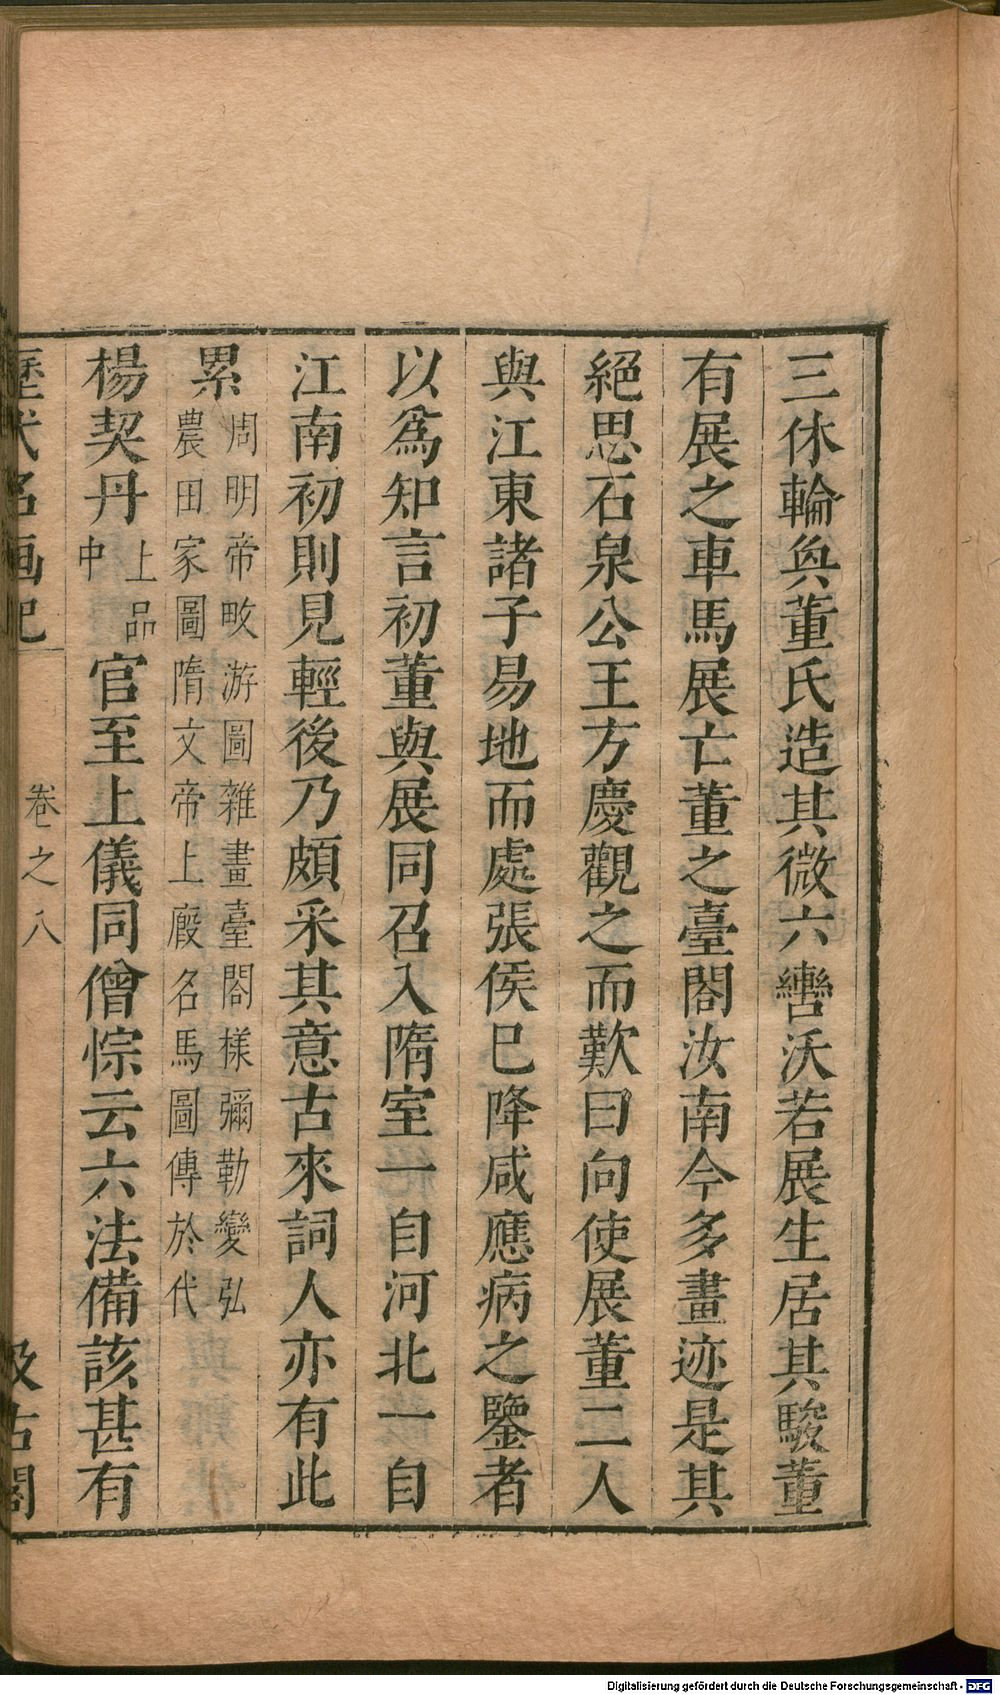 三休輪奐董氏造其微六轡沃若展生居其駿董
有展之車馬展亡董之臺閣汝南今多畫迹是其
絕思石泉公王方慶觀之而歎曰向使展董二人
與江東諸子易地而處張侯已降咸應病之鑒者
以爲知言初董與展同召入隋室一自河北一自
江南初則見輕後乃頗采其意古來詞人亦有此
累周明帝畋游圖雜畫臺閣樣彌勒變弘
農田家圖隋文帝上廄名馬圖傳於代
楊契丹上品中官至上儀同僧悰云六法備該甚有
歷代名画記 卷之八 汲古閣
Digitalisierung gefördert durch die Deutsche Forschungsgemeinschaft - DFG